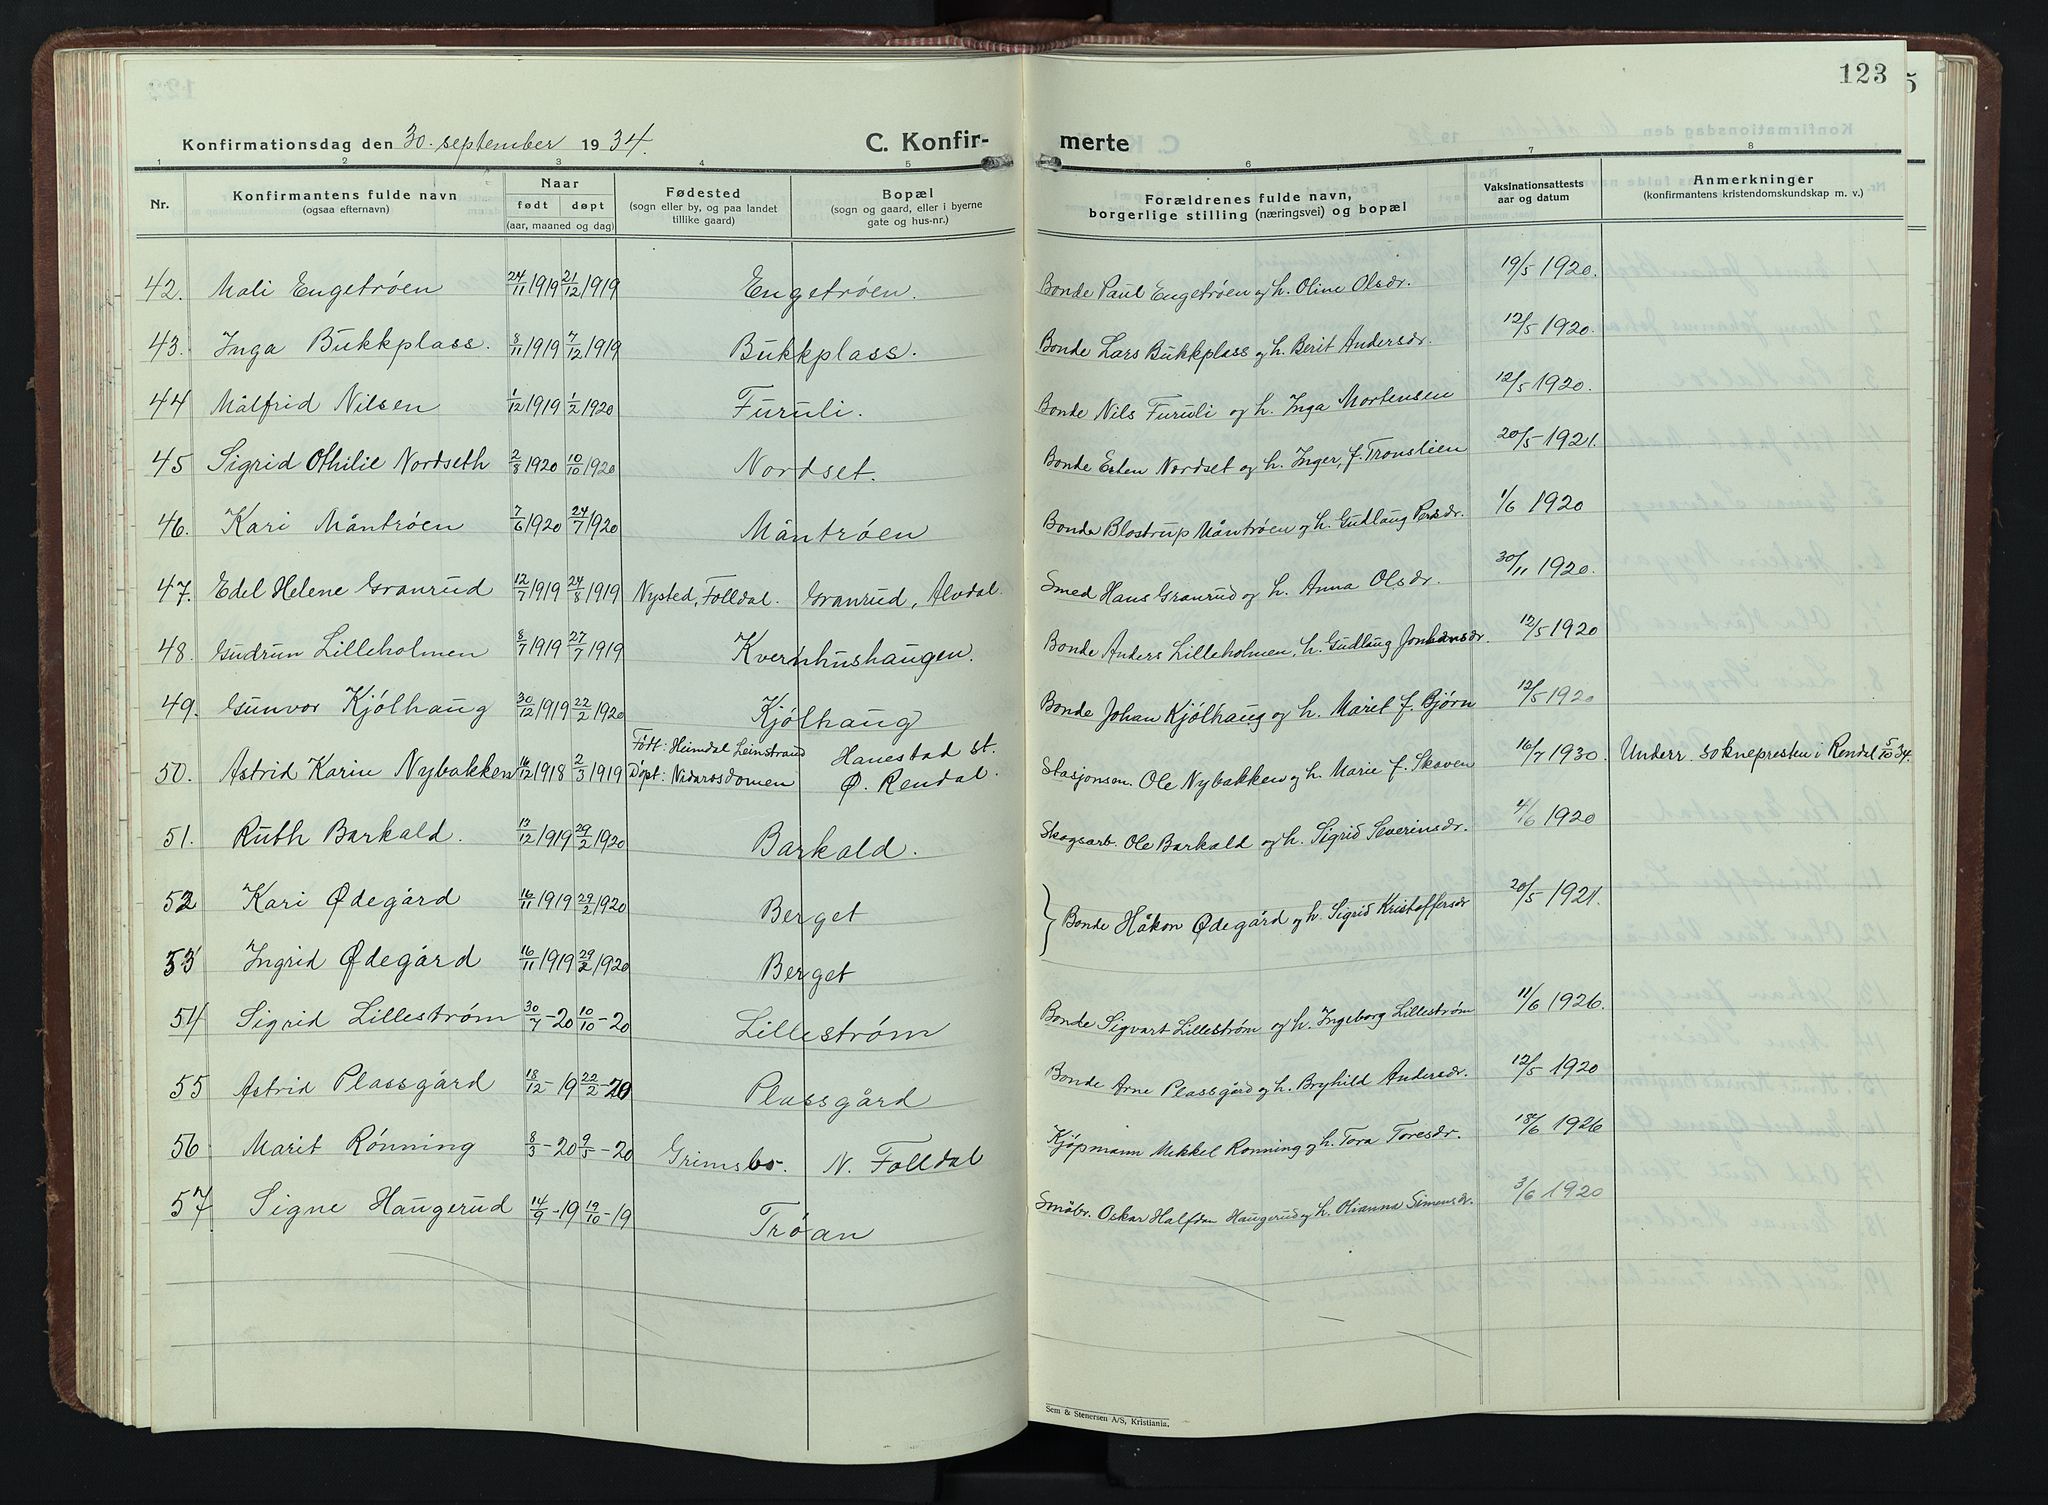 123
Konfirmationsdag den 30. september 1934. C. Konfir- merte
1 2 3 4 5 6 7 8
Nr. Konfirmantens fulde navn (ogsaa efternavn) Naar født døpt (aar, maaned og dag) Fødested (sogn eller by, og paa landet tillike gaard) Bopæl (sogn og gaard, eller i byerne gate og hus-nr.) Forældrenes fulde navn, borgerlige stilling (næringsvei) og bopæl Vaksinationsattests aar og datum Anmerkninger (konfirmantens kristendomskundskap m. v.)
42. Mali Engetrøen 24/11 1919 21/12 1919 Engetrøen. Bonde Paul Engetrøen og h. Oline Olsdr. 19/5 1920.
43. Inga Bukkplass. 8/11 1919 7/12 1919 Bukkplass. Bonde Lars Bukkplass og h. Berit Andersdr. 12/5 1920.
44 Målfrid Nilsen 1/12 1919 1/2 1920 Furuli. Bonde Nils Furuli og h. Inga Mortensen 12/5 1920.
45 Sigrid Othilie Nordseth 2/8 1920 10/10 1920 Nordset. Bonde Erlen Nordset og h. Inger, f. Tronslien 20/5-1921.
46. Kari Måntrøen 7/6 1920 24/7 1920 Måntrøen Bonde Blostrup Måntrøen og h. Gudlaug Persdr. 1/6 1920
47. Edel Helene Granrud 12/7 1919 24/8 1919 Nysted, Folldal. Granrud, Alvdal. Smed Hans Granrud og h. Anna Olsdr. 30/11 1920.
48. Gudrun Lilleholmen 8/7 1919 27/7 1919 Kvernhushaugen. Bonde Anders Lilleholmen, h. Gudlaug Johansdr. 12/5 1920
49. Gunvor Kjølhaug 30/12 1919 22/2 1920 Kjølhaug Bonde Johan Kjølhaug og h. Marit f. Bjørn 12/5 1920
50. Astrid Karin Nybakken 16/12 1918 2/3 1919 Født: Heimdal Leinstrand Døpt: Nidarosdomen Hanestad st. Ø. Rendal. Stasjonsm. Ole Nybakken og h. Marie f. Skaven 16/7 1930. Underr. soknepresten i Rendal 5/10 34.
51. Ruth Barkald. 13/12 1919 29/2 1920 Barkald. Skogsarb. Ole Barkald og h. Sigrid Severinsdr. 4/6 1920
52 Kari Ødegård 16/11 1919 29/2 1920 Berget } Bonde Håkon Ødegård og h. Sigrid Kristoffersdr 20/5 1921.
53 Ingrid Ødegård 16/11 1919 29/2 1920 Berget
54 Sigrid Lillestrøm 30/7-20 10/10-20 Lillestrøm Bonde Sigvart Lillestrøm og h. Ingeborg Lillestrøm 11/6 1926.
55 Astrid Plassgård 18/12-19 22/2-20 Plassgård Bonde Arne Plassgård og h. Bryhild Andersdr. 12/5 1920
56 Marit Rønning 8/3-20 9/5-20 Grimsbo. N. Folldal Kjøpmann Mikkel Rønning og h. Tora Toresdr. 18/6 1926
57 Signe Haugerud 14/9-19 19/10-19 Trøan Småbr. Oskar Halfdan Haugerud og h. Olianna Simensdr. 3/6 1920
Sem & Stenersen A/S, Kristiania.